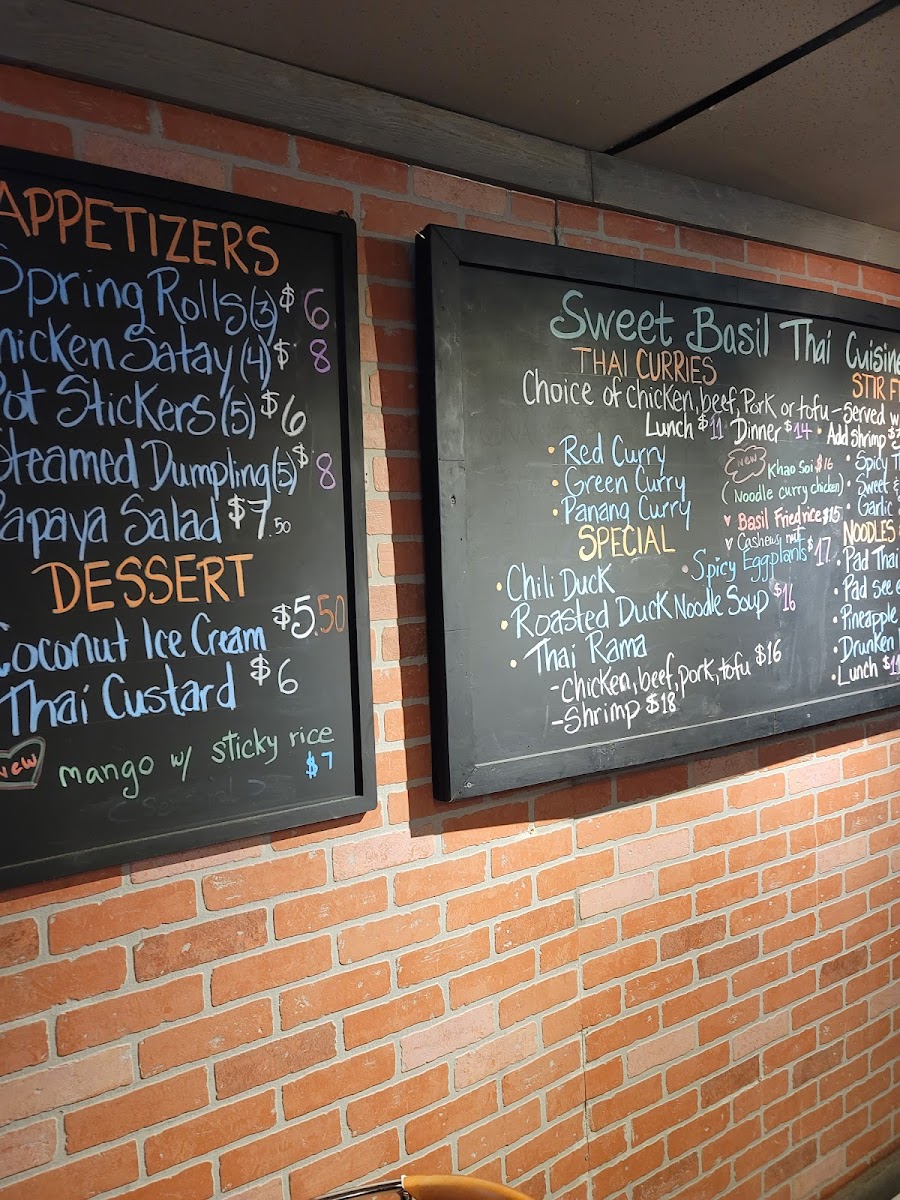 APPETIZERS
Spring Rolls (3) $6
Chicken Satay (4) $8
Pot Stickers (5) $6
Steamed Dumpling (5) $8
Papaya Salad $7.50
DESSERT
Coconut Ice Cream $5.50
Thai Custard $6
new mango w/ sticky rice
$7
Sweet Basil Thai Cuisine
THAI CURRIES
Choice of chicken, beef, Pork or tofu - served
Lunch $11 Dinner $14 • Add shrimp
• Red Curry
• Green Curry
• Panang Curry
new Khao Soi $16
(Noodle curry chicken)
♥ Basil Fried rice $15
♥ Cashews nut
SPECIAL
• Chili Duck
• Spicy Eggplants $17
• Roasted Duck Noodle Soup $16
• Thai Rama
- chicken, beef, pork, tofu $16
- Shrimp $18
STIR
• Spicy
• Sweet
• Garlic
NOODLES
• Pad Thai
• Pad see
• Pineapple
• Drunken
• Lunch